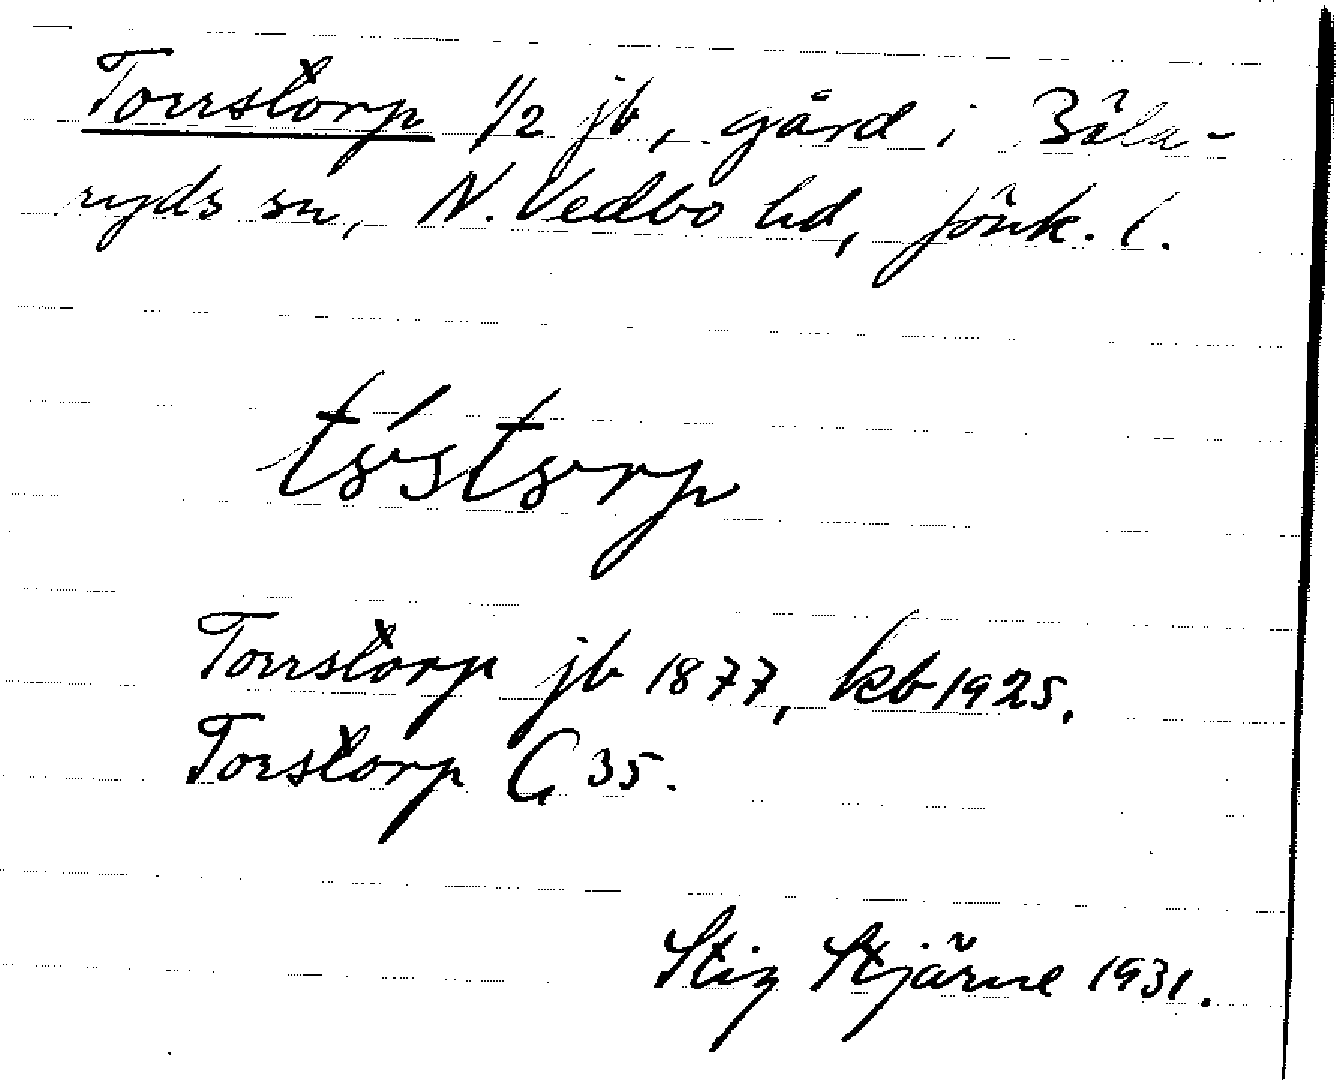 Torrstorp 1/2 jb, gård i Bäla-
ryds sn, N. Vedbo hd, Jönk. l.
tòstorp
Torrstorp jb 1877, kb 1925.
Torstorp G 35.
Stig Stjärne 1931.